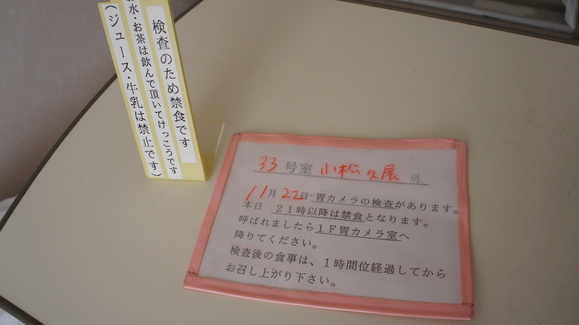 検査のため禁食です
お水・お茶は飲んで頂いてけっこうです
(ジュース・牛乳は禁止です)
33号室 小松久展 様
11月22日 胃カメラの検査があります。
本日 21時以降は禁食となります。
呼ばれましたら1F胃カメラ室へ
降りてください。
検査後の食事は、1時間位経過してから
お召し上がり下さい。